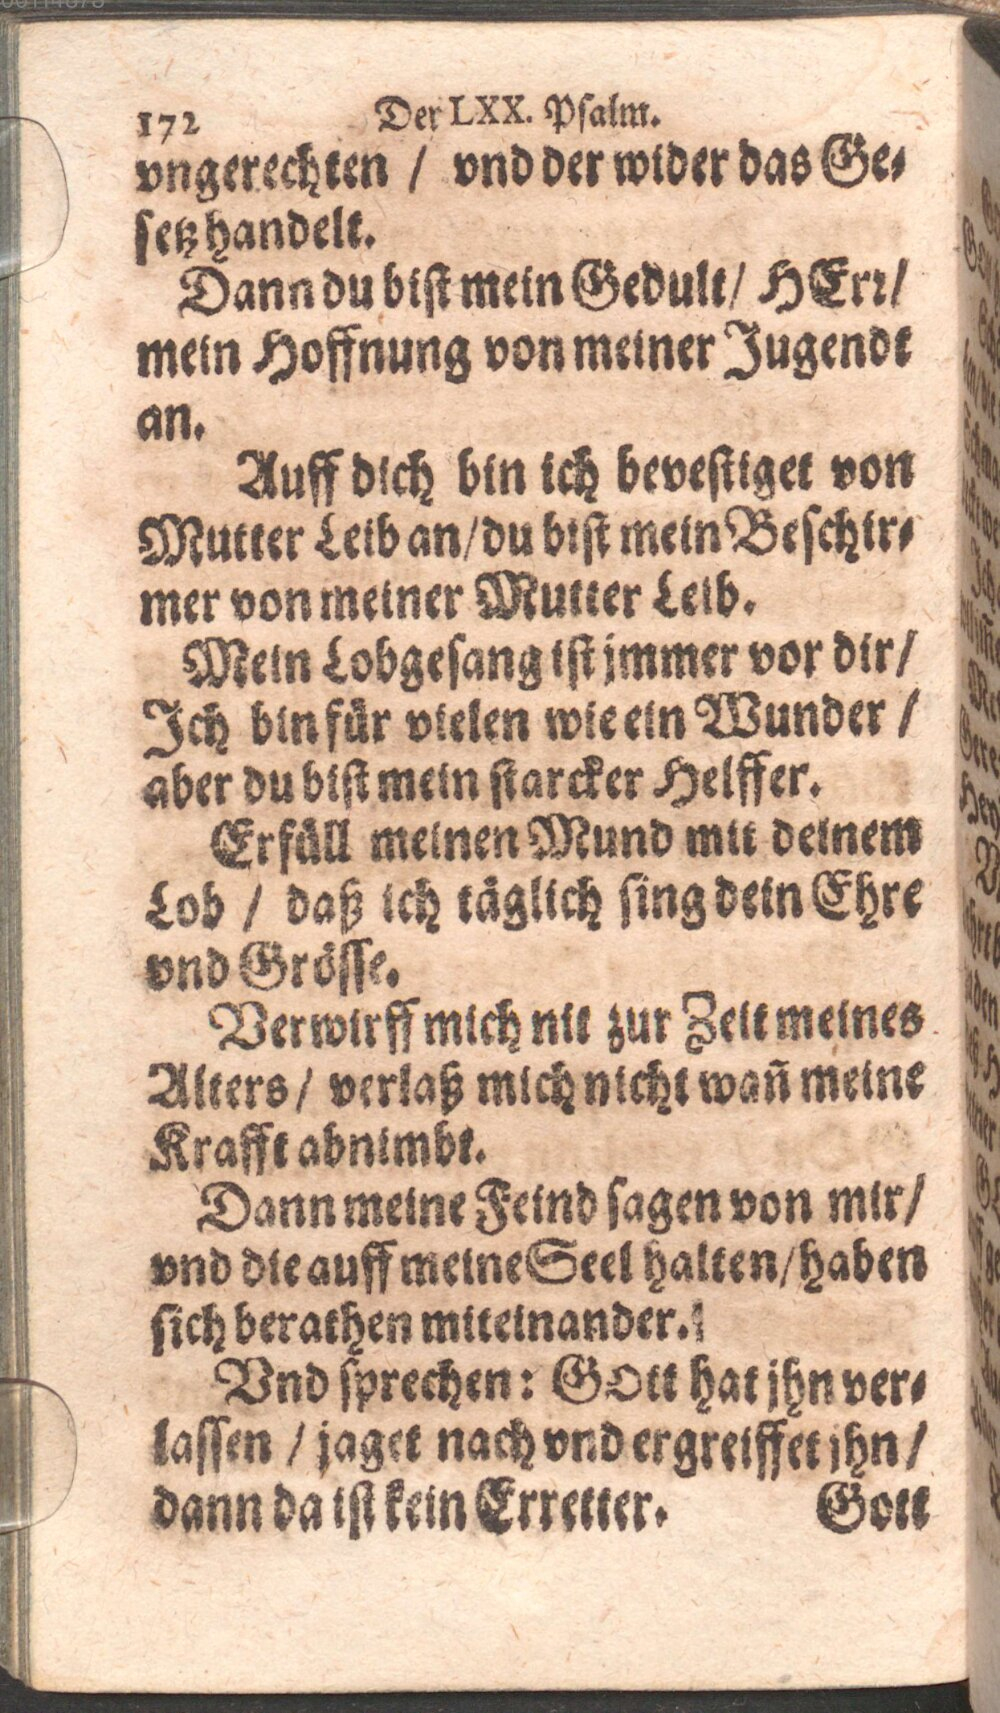 172 Der LXX. Psalm.
vngerechten / vnd der wider das Ge-
setz handelt.
Dann du bist mein Gedult / HErr /
mein Hoffnung von meiner Jugendt
an.
Auff dich bin ich bevestiget von
Mutter Leib an / du bist mein Beschir-
mer von meiner Mutter Leib.
Mein Lobgesang ist jmmer vor dir /
Ich bin für vielen wie ein Wunder /
aber du bist mein starcker Helffer.
Erfüll meinen Mund mit deinem
Lob / daß ich täglich sing dein Ehre
vnd Grösse.
Verwirff mich nit zur Zeit meines
Alters / verlaß mich nicht wañ meine
Krafft abnimbt.
Dann meine Feind sagen von mir /
vnd die auff meine Seel halten / haben
sich berathen miteinander.
Vnd sprechen: GOtt hat jhn ver-
lassen / jaget nach vnd ergreiffet jhn /
dann da ist kein Erretter. Gott